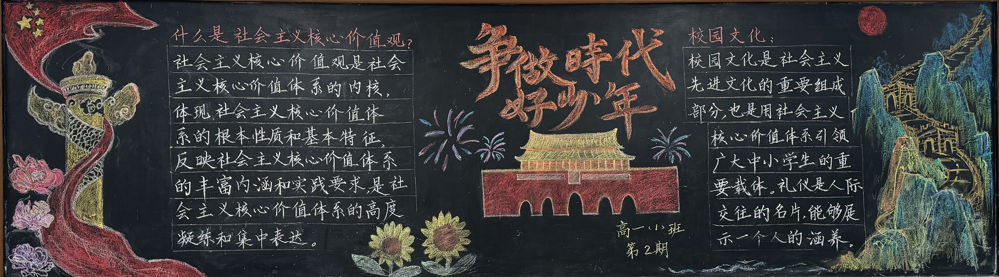 什么是社会主义核心价值观？
社会主义核心价值观是社会
主义核心价值体系的内核，
体现社会主义核心价值体
系的根本性质和基本特征，
反映社会主义核心价值体系
的丰富内涵和实践要求，是社
会主义核心价值体系的高度
凝练和集中表达。
争做時代
好少年
高一（）班
第2期
校园文化：
校园文化是社会主义
先进文化的重要组成
部分，也是用社会主义
核心价值体系引领
广大中小学生的重
要载体，礼仪是人际
交往的名片，能够展
示一个人的涵养。